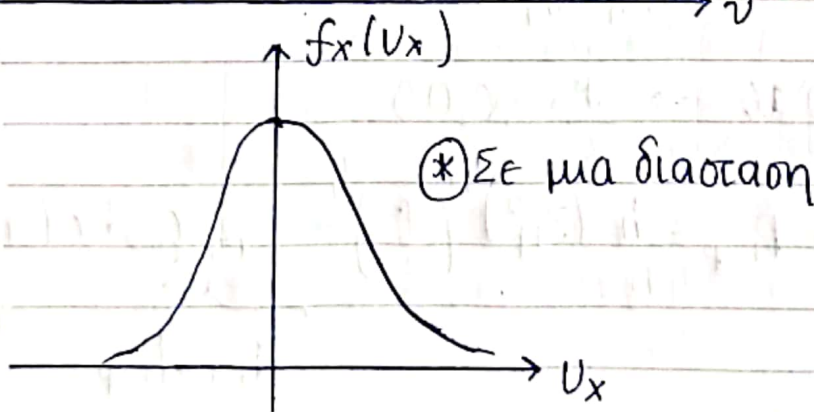 υ
fx(υx)
* Σε μια διασταση
υx